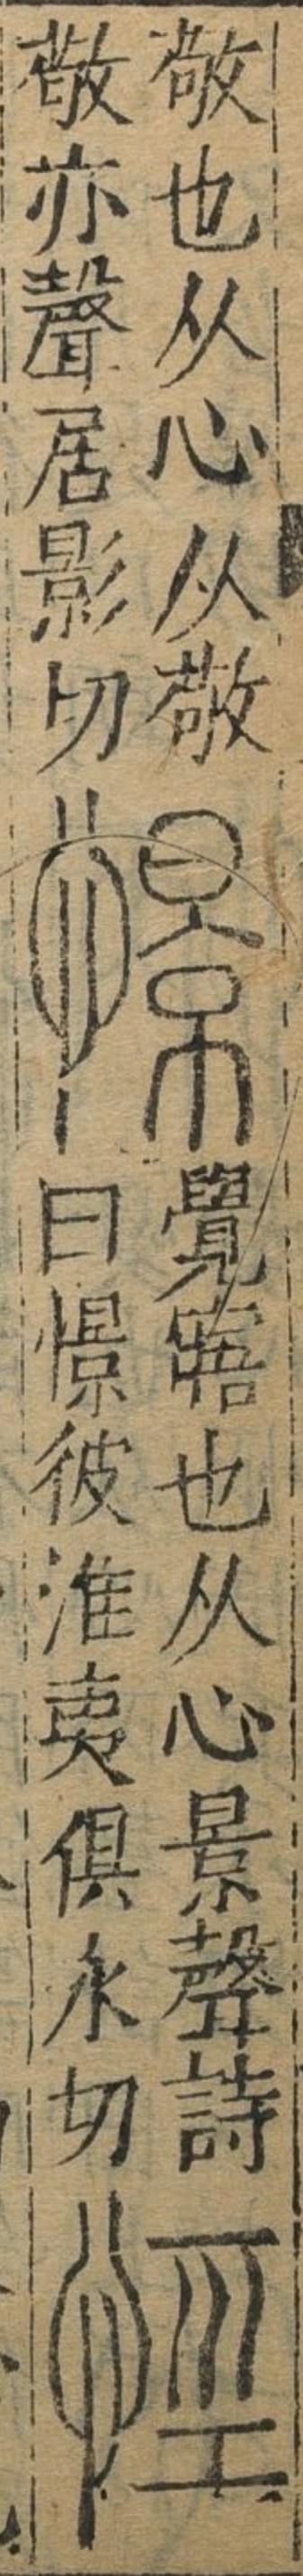 敬也从心从敬
敬亦聲居影切
憬
覺寤也从心景聲詩
曰憬彼淮夷俱永切
悙